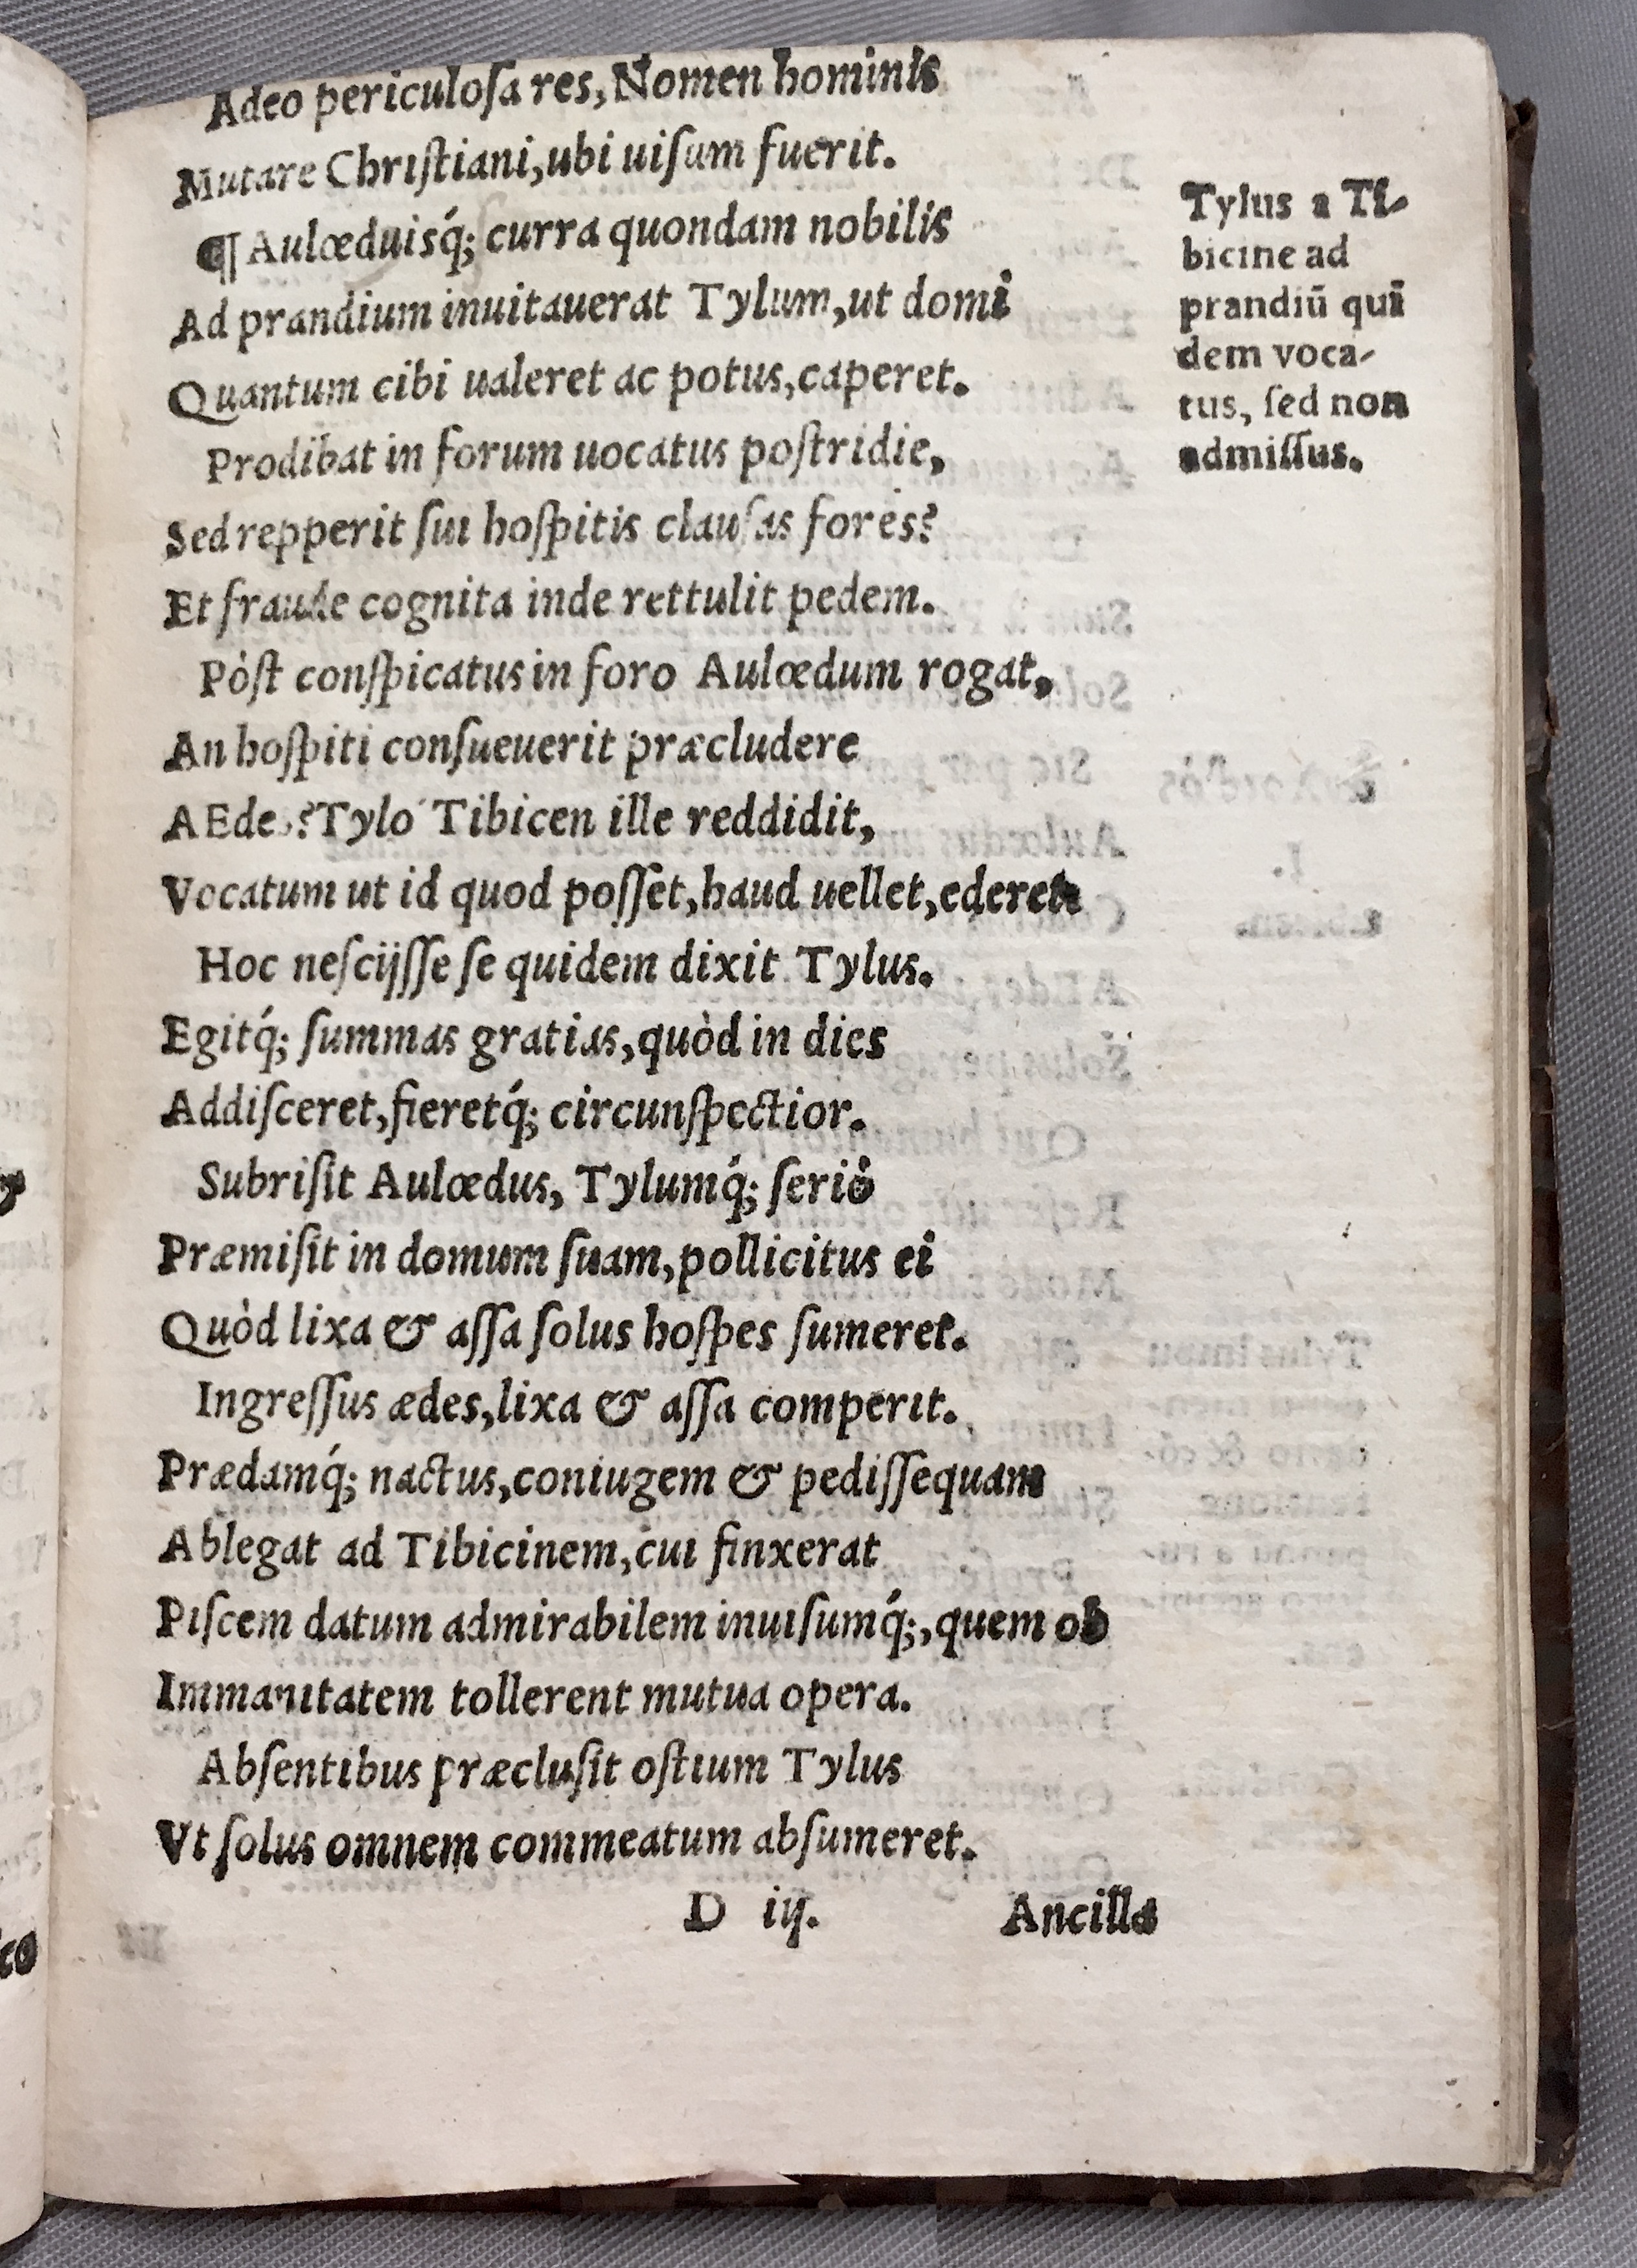 Adeo periculoſa res, Nomen hominis
Mutare Chriſtiani, ubi uiſum fuerit.
¶ Aulœduisq́; curra quondam nobilis
Ad prandium inuitauerat Tylum, ut domi
Quantum cibi ualeret ac potus, caperet.
Prodibat in forum uocatus poſtridie,
Sed repperit ſui hoſpitis clauſas fores?
Et fraude cognita inde rettulit pedem.
Pòſt conſpicatus in foro Aulœdum rogat,
An hoſpiti conſueuerit præcludere
AEdes? Tylo Tibicen ille reddidit,
Vocatum ut id quod poſſet, haud uellet, ederet.
Hoc neſcijſſe ſe quidem dixit Tylus.
Egitq́; ſummas gratias, quòd in dies
Addiſceret, fieretq́; circunſpectior.
Subriſit Aulœdus, Tylumq́; ſeriò
Præmiſit in domum ſuam, pollicitus ei
Quòd lixa & aſſa ſolus hoſpes ſumeret.
Ingreſſus ædes, lixa & aſſa comperit.
Prædamq́; nactus, coniugem & pediſſequam
Ablegat ad Tibicinem, cui finxerat
Piſcem datum admirabilem inuiſumq́;, quem ob
Immanitatem tollerent mutua opera.
Abſentibus præcluſit oſtium Tylus
Vt ſolus omnem commeatum abſumeret.
D iij.
Ancilla
Tylus a Ti-
bicine ad
prandiū qui
dem voca-
tus, ſed non
admiſſus.